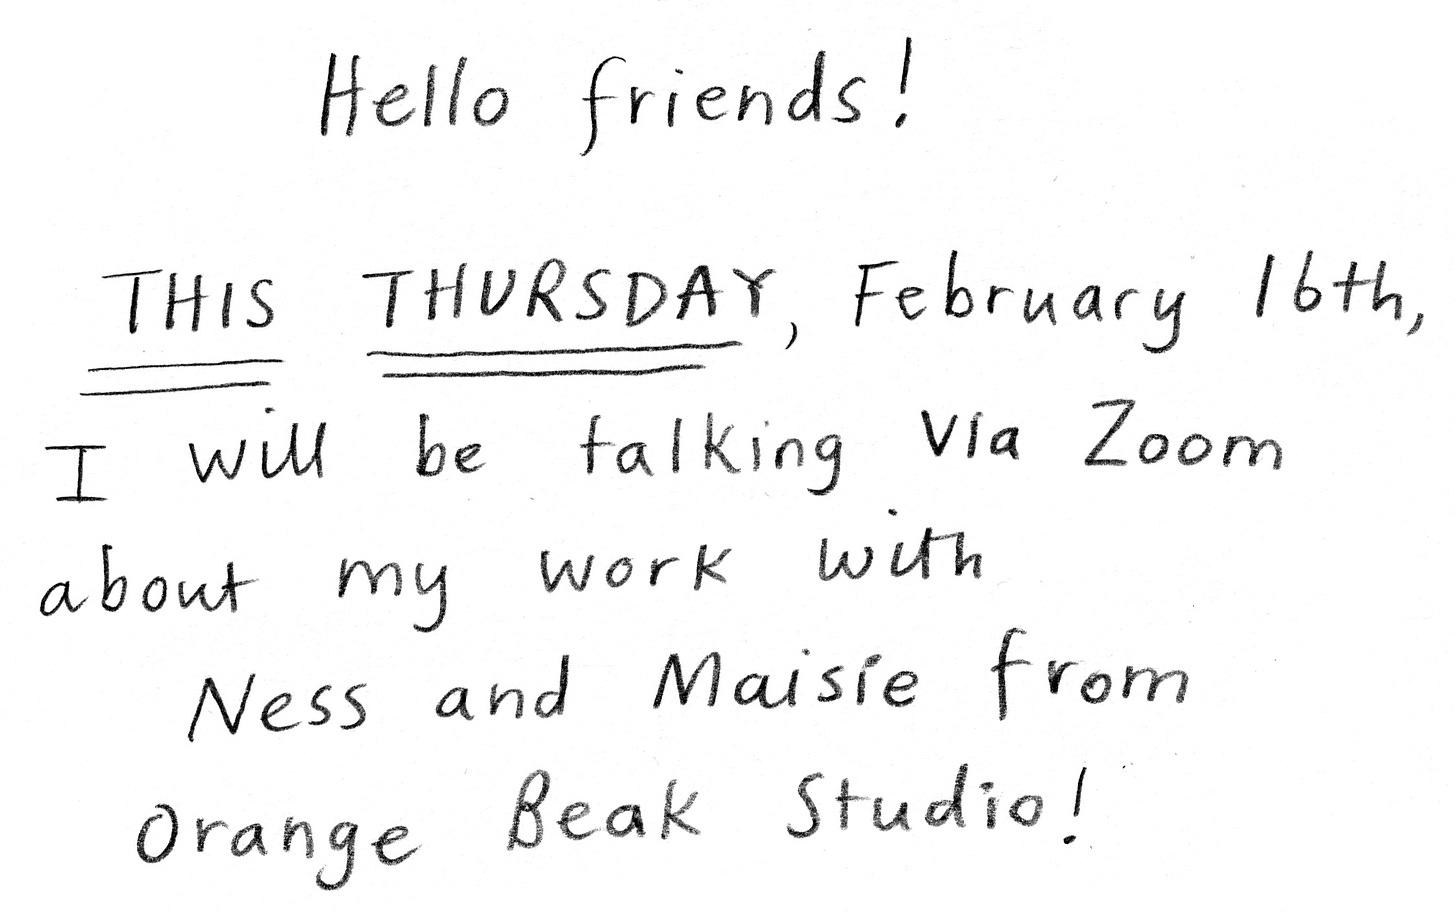 Hello friends!
THIS THURSDAY, February 16th,
I will be talking via Zoom
about my work with
Ness and Maisie from
Orange Beak Studio!